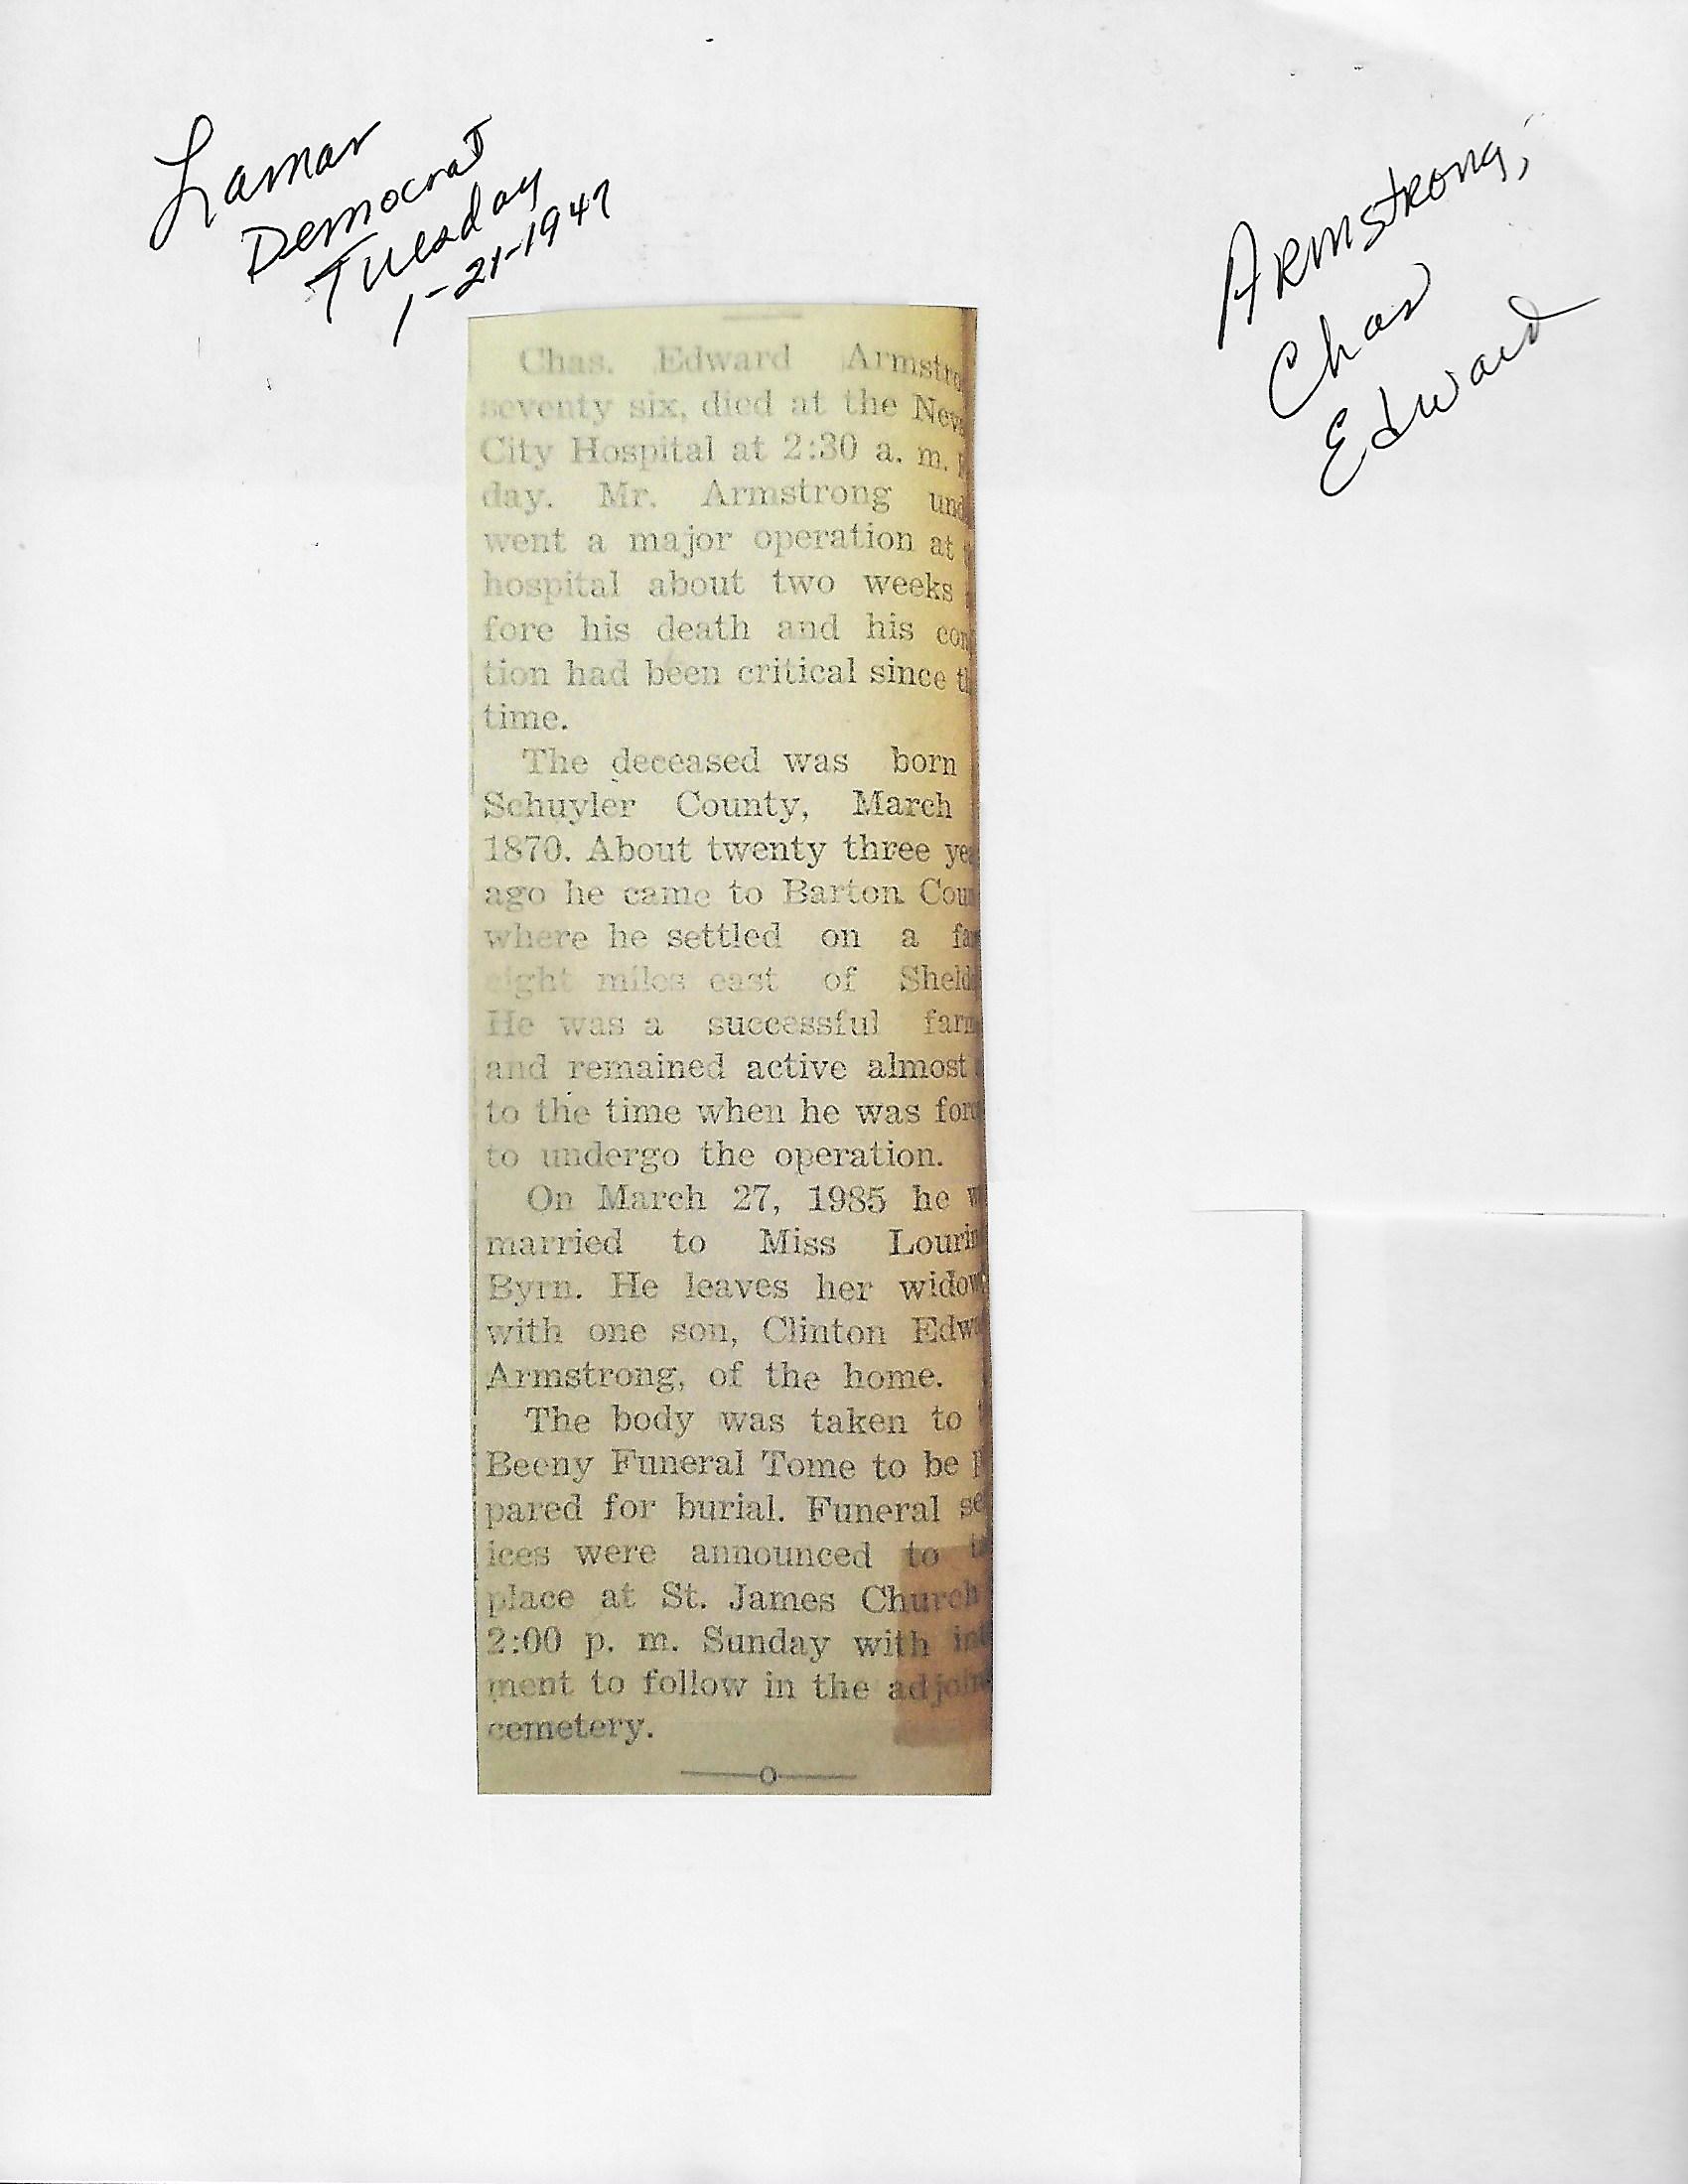 Lamar
Democrat
Tuesday
1-21-1947
Armstrong,
Chas
Edward
Chas. Edward Armstro
seventy six, died at the Neva
City Hospital at 2:30 a. m.
day. Mr. Armstrong und
went a major operation at
hospital about two weeks
fore his death and his con
tion had been critical since th
time.
The deceased was born
Schuyler County, March
1870. About twenty three yea
ago he came to Barton Coun
where he settled on a fa
eight miles east of Sheld
He was a successful farm
and remained active almost
to the time when he was forc
to undergo the operation.
On March 27, 1985 he w
married to Miss Lourin
Byrn. He leaves her widow
with one son, Clinton Edwa
Armstrong, of the home.
The body was taken to
Beeny Funeral Tome to be p
pared for burial. Funeral se
ices were announced to t
place at St. James Church
2:00 p. m. Sunday with int
ment to follow in the adjoin
cemetery.
O